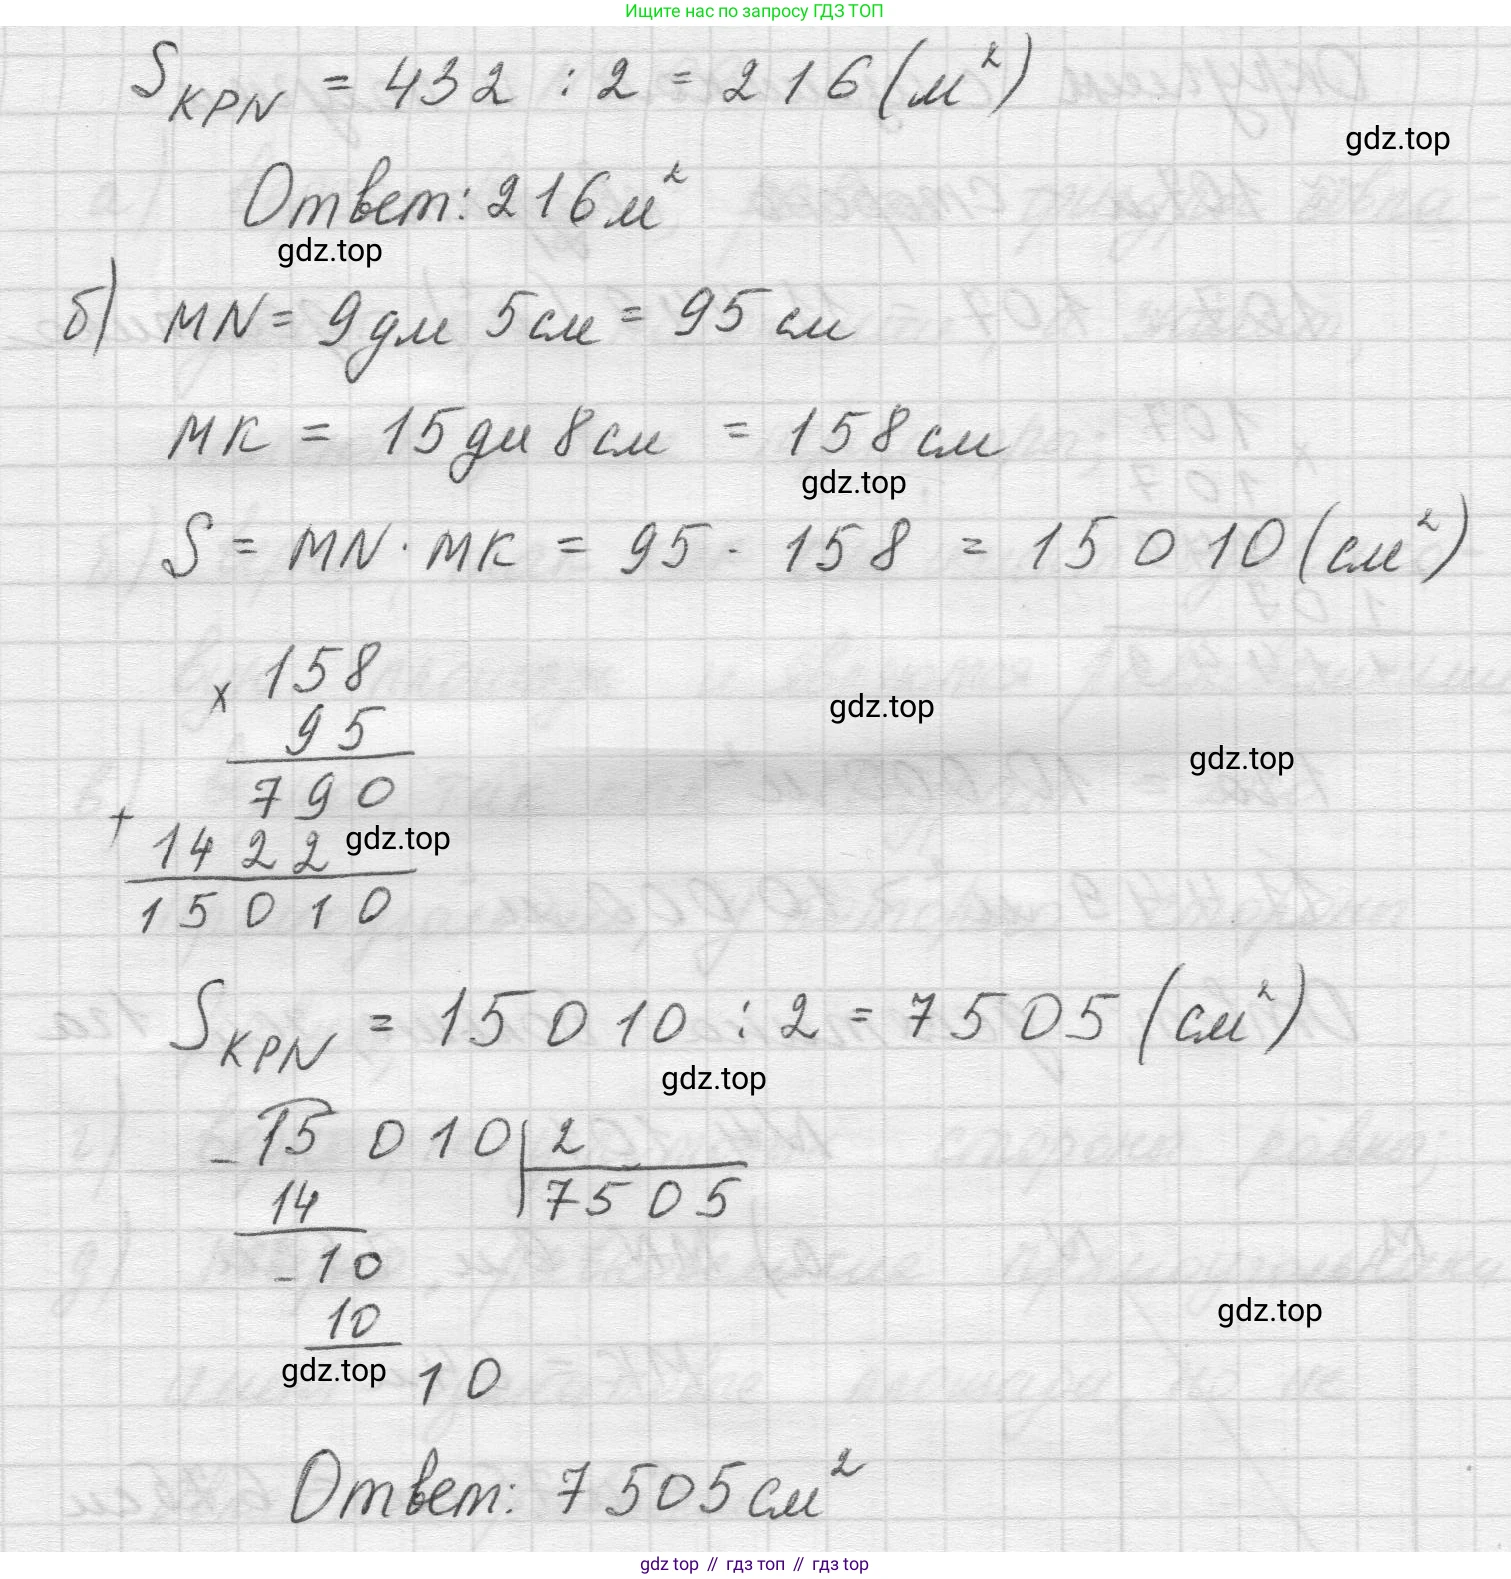 Ищите нас по запросу ГДЗ ТОП
S KPN = 432 : 2 = 216 (м²)
gdz.top
Ответ: 216 м²
gdz.top
б) MN = 9 дм 5 см = 95 см
MK = 15 дм 8 см = 158 см
gdz.top
S = MN · MK = 95 · 158 = 15 010 (см²)
158
x
gdz.top
95
gdz.top
790
+
1422
gdz.top
15010
S KPN = 15 010 : 2 = 7505 (см²)
gdz.top
- 15 010 2
14 7505
- 10
10
gdz.top
gdz.top
10
Ответ: 7505 см²
gdz top // гдз топ // гдз top